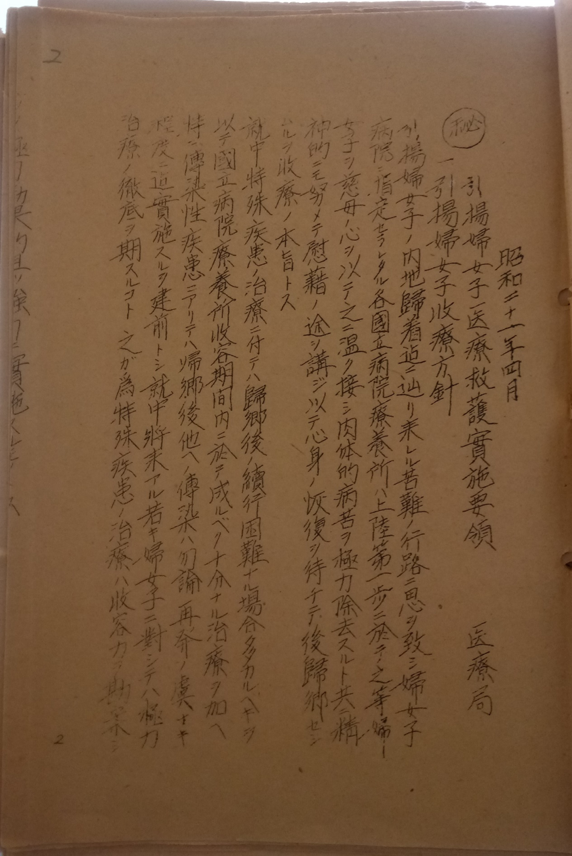 2
秘
昭和二十一年四月
引揚婦女子医療救護實施要領 医療局
一、引揚婦女子收療方針
引揚婦女子ノ内地歸着迄ニ辿リ来レル苦難ノ行路ニ思ヲ致シ婦女子
病院ニ指定セラレタル各國立病院療養所ハ上陸第一歩ニ於テ之等婦
女子ヲ慈母ノ心ヲ以テ之ニ温ク接シ肉体的病苦ヲ極力除去スルト共ニ精
神的ニモ努メテ慰藉ノ途ヲ講ジ以テ心身ノ恢復ヲ待チテ後歸郷セシ
ムルヲ收療ノ本旨トス
就中特殊疾患ノ治療ニ付テハ歸郷後ノ續行困難ナル場合多カルベキヲ
以テ國立病院療養所收容期間内ニ於テ成ルベク十分ナル治療ヲ加ヘ
特ニ傳染性疾患ニアリテハ帰郷後他ヘノ傳染ハ勿論再発ノ虞ナキ
程度ニ迄實施スルヲ建前トシ就中將来アル若キ婦女子ニ對シテハ極力
治療ノ徹底ヲ期スルコト之ガ為特殊疾患ノ治療ハ收容力ヲ勘案シ
2